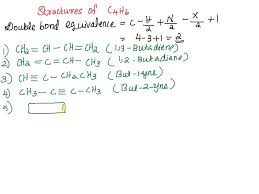 Structures of C4H6
Double bond equivalence = C - H/2 + N/2 - X/2 + 1
= 4-3+1 = 2
1) CH2 = CH - CH = CH2 (1,3-Butadiene)
2) CH2 = C = CH - CH3 (1,2-Butadiene)
3) CH ≡ C - CH2CH3 (But-1-yne)
4) CH3 - C ≡ C - CH3 (But-2-yne)
5)